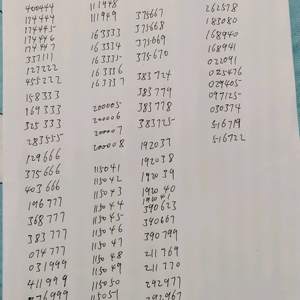 400444
174445
174446
174447
337111
127222
455222
158333
169333
325333
283555
129666
375666
403666
196777
368777
383777
074777
031999
411999
111948
111949
163333
163334
163335
163336
163337
200005
200006
200007
200008
115041
115042
115043
115044
115045
115046
115047
115048
115049
115050
115051
375667
375668
375669
375670
383724
383779
383778
383725
192037
192038
192039
192040
192041
390623
390667
390799
211769
211770
292977
292967
262578
183080
168940
168941
022091
025476
029405
097125
030374
516719
516722